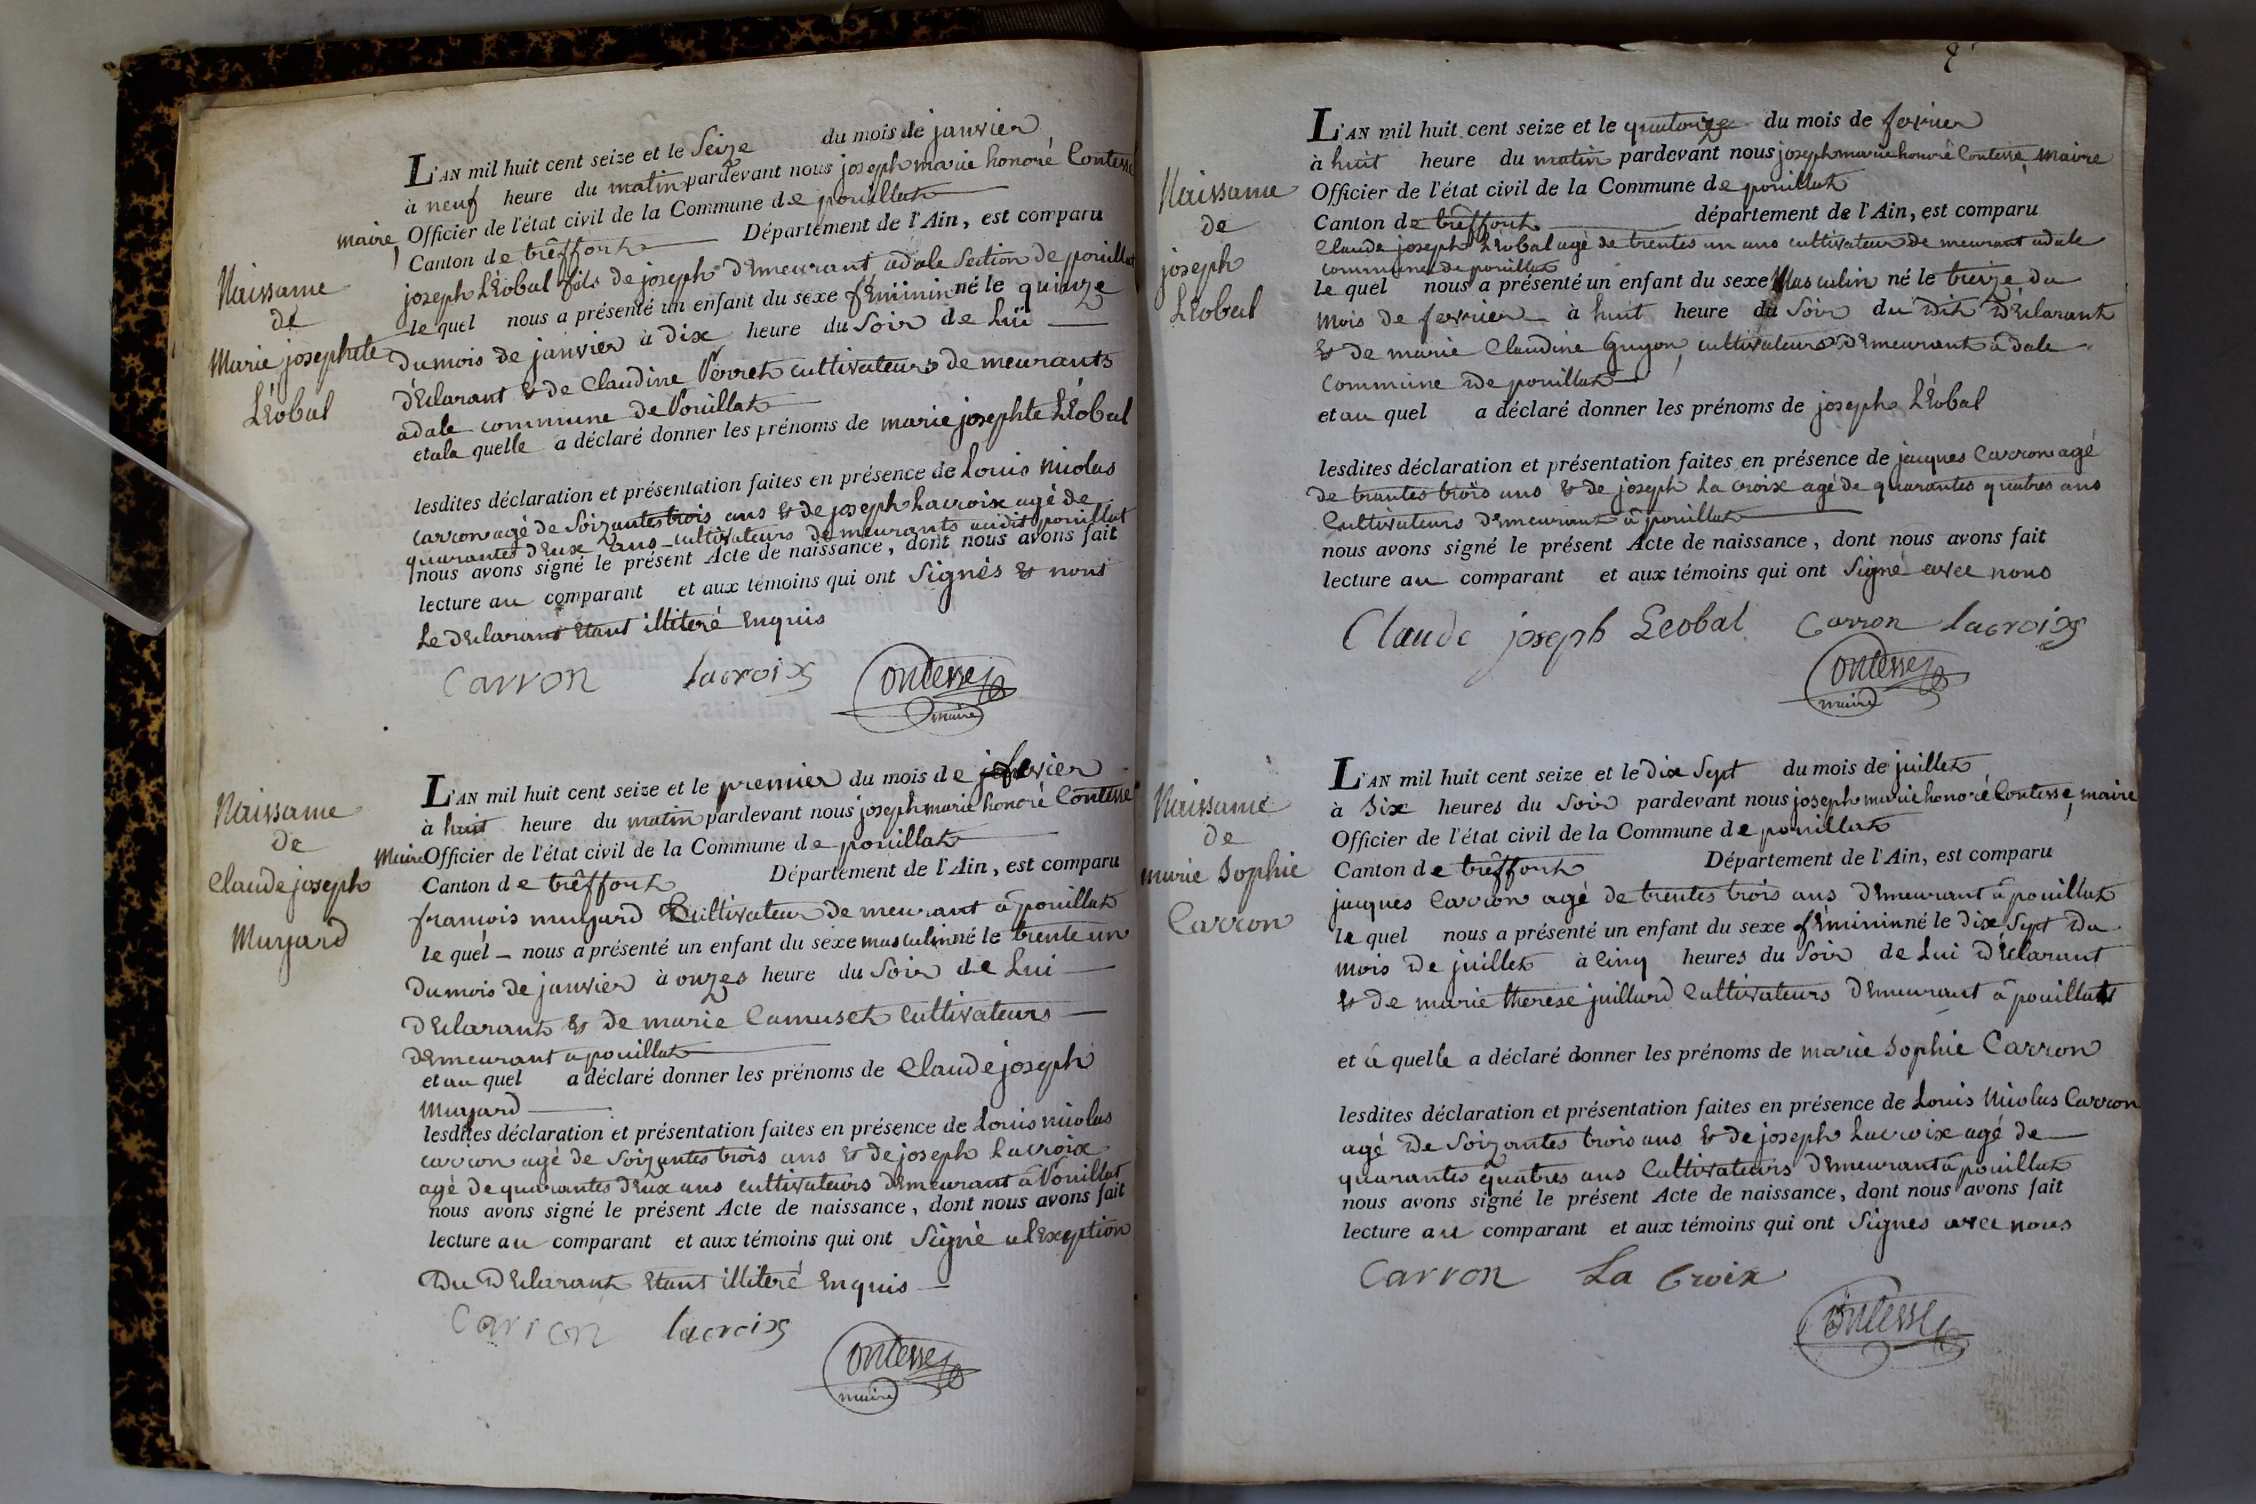 L'AN mil huit cent seize et le Seize du mois de janvier
à neuf heure du matin pardevant nous joseph marie honoré Contesse
maire Officier de l'état civil de la Commune de pouillat
Canton de trêffort Département de l'Ain, est comparu
joseph Léobal fils de joseph demeurant adale Section de pouillat
le quel nous a présenté un enfant du sexe féminin né le quinze
du mois de janvier à dix heure du Soir de Lui
déclarant & de Claudine Perret cultivateurs demeurants
adale commune de Pouillat
et a la quelle a déclaré donner les prénoms de marie josephte Léobal
lesdites déclaration et présentation faites en présence de Louis nicolas
carron agé de Soizantes trois ans & de joseph Lacroix agé de
quarantes deux ans cultivateurs demeurants audit pouillat
nous avons signé le présent Acte de naissance, dont nous avons fait
lecture au comparant et aux témoins qui ont Signés & nous
Le déclarant étant illiteré enquis
Carron lacroix Contesse
maire
Naissame
de
Marie josephte
Léobal
L'AN mil huit cent seize et le premier du mois de fevrier
à huit heure du matin pardevant nous joseph marie honoré Contesse
Maire Officier de l'état civil de la Commune de pouillat
Canton de trêffort Département de l'Ain, est comparu
francois muyard Cultivateur demeurant à pouillat
le quel nous a présenté un enfant du sexe masculin né le trente un
du mois de janvier à onzes heure du Soir de Lui
déclarant & de marie Camuset Cultivateurs
demeurant à pouillat
et au quel a déclaré donner les prénoms de Claude joseph
Muyard
lesdites déclaration et présentation faites en présence de Louis nicolas
carron agé de Soizantes trois ans & de joseph Lacroix
agé de quarantes deux ans cultivateurs demeurant à Pouillat
nous avons signé le présent Acte de naissance, dont nous avons fait
lecture au comparant et aux témoins qui ont Signé a lexeption
du déclarant étant illiteré enquis
Carron lacroix
Contesse
maire
Naissame
de
Claude joseph
Muyard
L'AN mil huit cent seize et le quatorze du mois de fevrier
à huit heure du matin pardevant nous joseph marie honoré Contesse, Maire
Officier de l'état civil de la Commune de pouillat
Canton de trêffort département de l'Ain, est comparu
Claude joseph Léobal agé de trentes un ans cultivateur demeurant adale
commune de pouillat
le quel nous a présenté un enfant du sexe Masculin né le treize du
mois de fevrier à huit heure du Soir du dit déclarant
& de marie Claudine Guyon, cultivateurs demeurant à dale
commune de pouillat
et au quel a déclaré donner les prénoms de joseph Léobal
lesdites déclaration et présentation faites en présence de jacques Carron agé
de trantes trois ans & de joseph La croix agé de quarantes quatres ans
Cultivateurs demeurant à pouillat
nous avons signé le présent Acte de naissance, dont nous avons fait
lecture au comparant et aux témoins qui ont Signé avec nous
Claude joseph Leobal Carron lacroix
Contesse
maire
Naissame
de
joseph
Léobal
L'AN mil huit cent seize et le dix Sept du mois de juillet
à Six heures du Soir pardevant nous joseph marie honoré Contesse, maire
Officier de l'état civil de la Commune de pouillat
Canton de trêffort Département de l'Ain, est comparu
jacques Carron agé de trentes trois ans demeurant à pouillat
le quel nous a présenté un enfant du sexe féminin né le dix Sept du
mois de juillet à Cinq heures du Soir de Lui déclarant
& de marie therese juillard Cultivateurs demeurant à pouillat
et à quelle a déclaré donner les prénoms de marie Sophie Carron
lesdites déclaration et présentation faites en présence de Louis Nicolas Carron
agé de Soizantes trois ans & de joseph Lacroix agé de
quarantes quatres ans Cultivateurs demeurant à pouillat
nous avons signé le présent Acte de naissance, dont nous avons fait
lecture au comparant et aux témoins qui ont Signes avec nous
Carron La Croix
Contesse
Naissame
de
marie Sophie
Carron